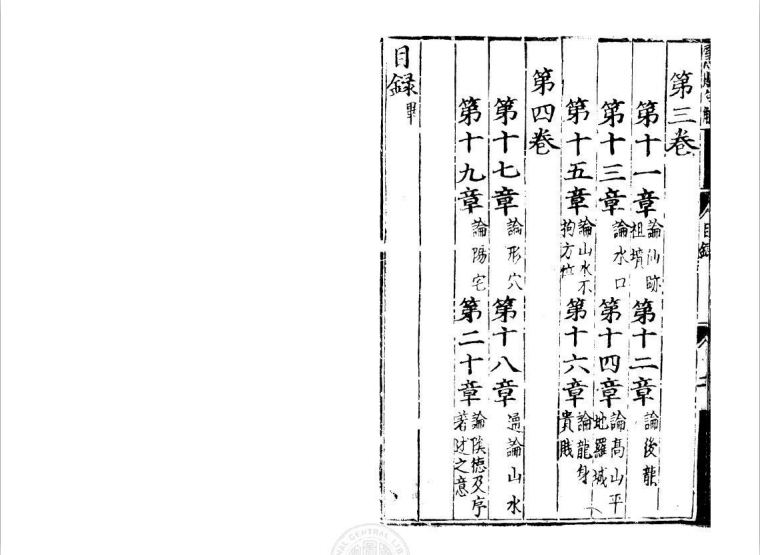 目録
第三卷
第十一章 論仙跡祖墳 第十二章 論後龍
第十三章 論水口 第十四章 論高山平地羅城
第十五章 論山水不拘方位 第十六章 論龍身貴賤
第四卷
第十七章 論形穴 第十八章 通論山水
第十九章 論陽宅 第二十章 論陰德及序著述之意
目録畢
CENTRAL